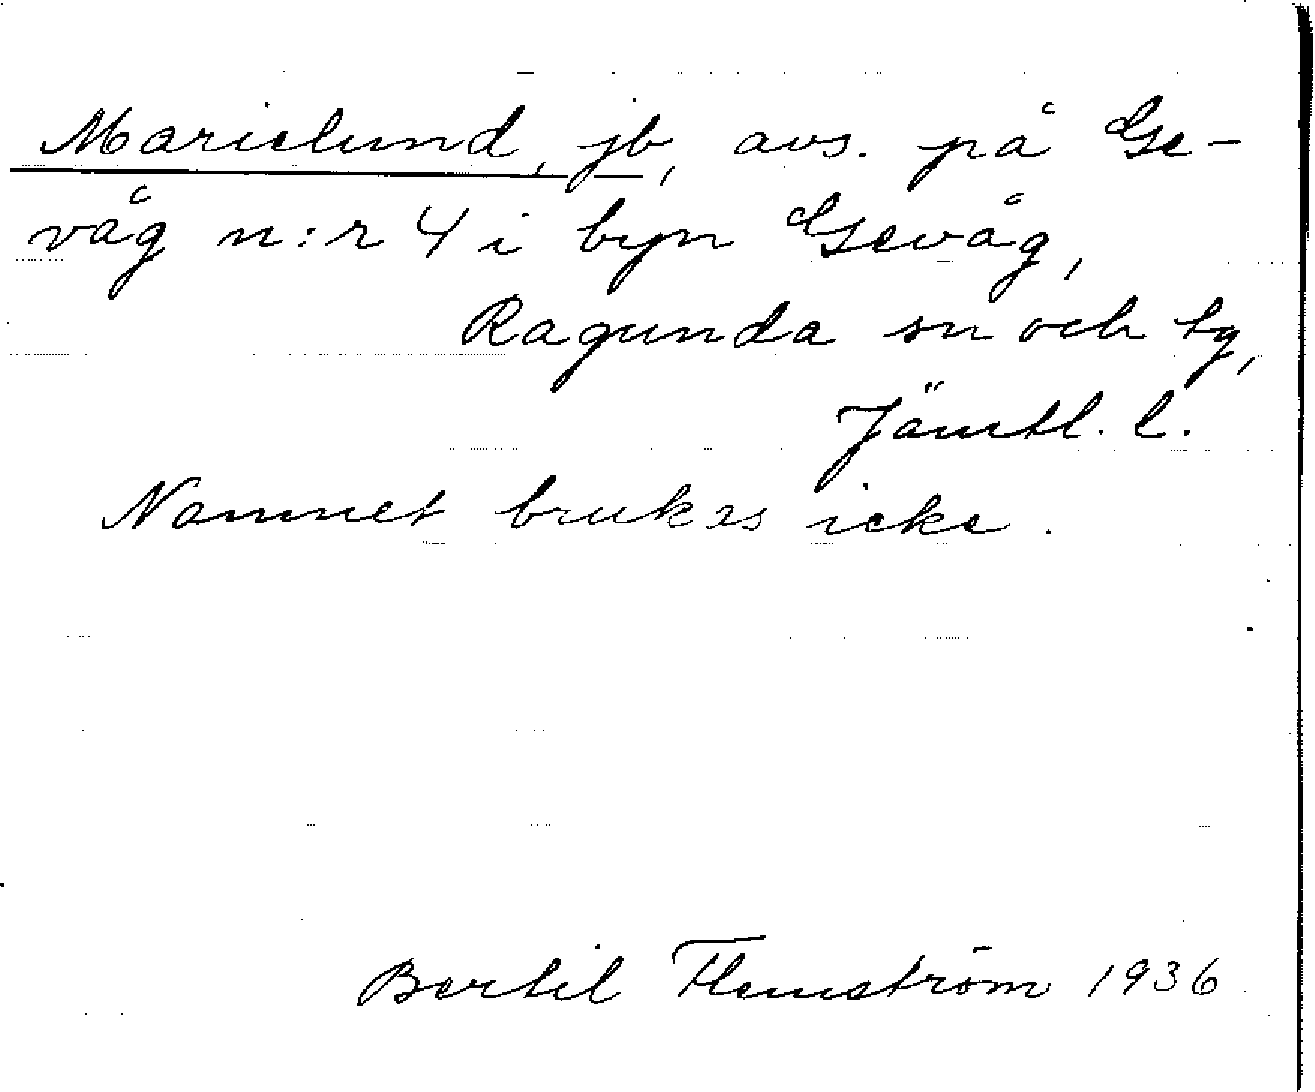 Marielund, jb, avs. på Ge-
våg n:r 4 i byn Gevåg,
Ragunda sn och tg,
Jämtl. l.
Namnet brukas icke.
Bertil Flemström 1936